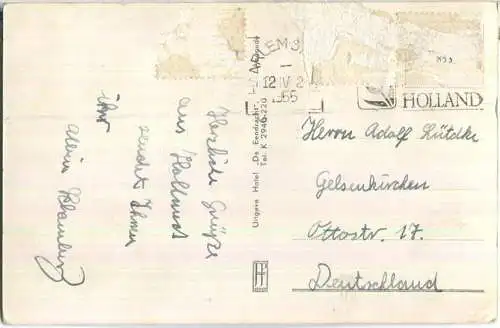 Herzliche Grüße
aus Holland
sendet Ihnen
Ihr
Uitgave Hotel „De Eendracht”,
Tel. K 2940-220
12 IV 2
1955
HOLLAND
Herrn Adolf Lüdtke
Gelsenkirchen
Ottostr. 17.
Deutschland